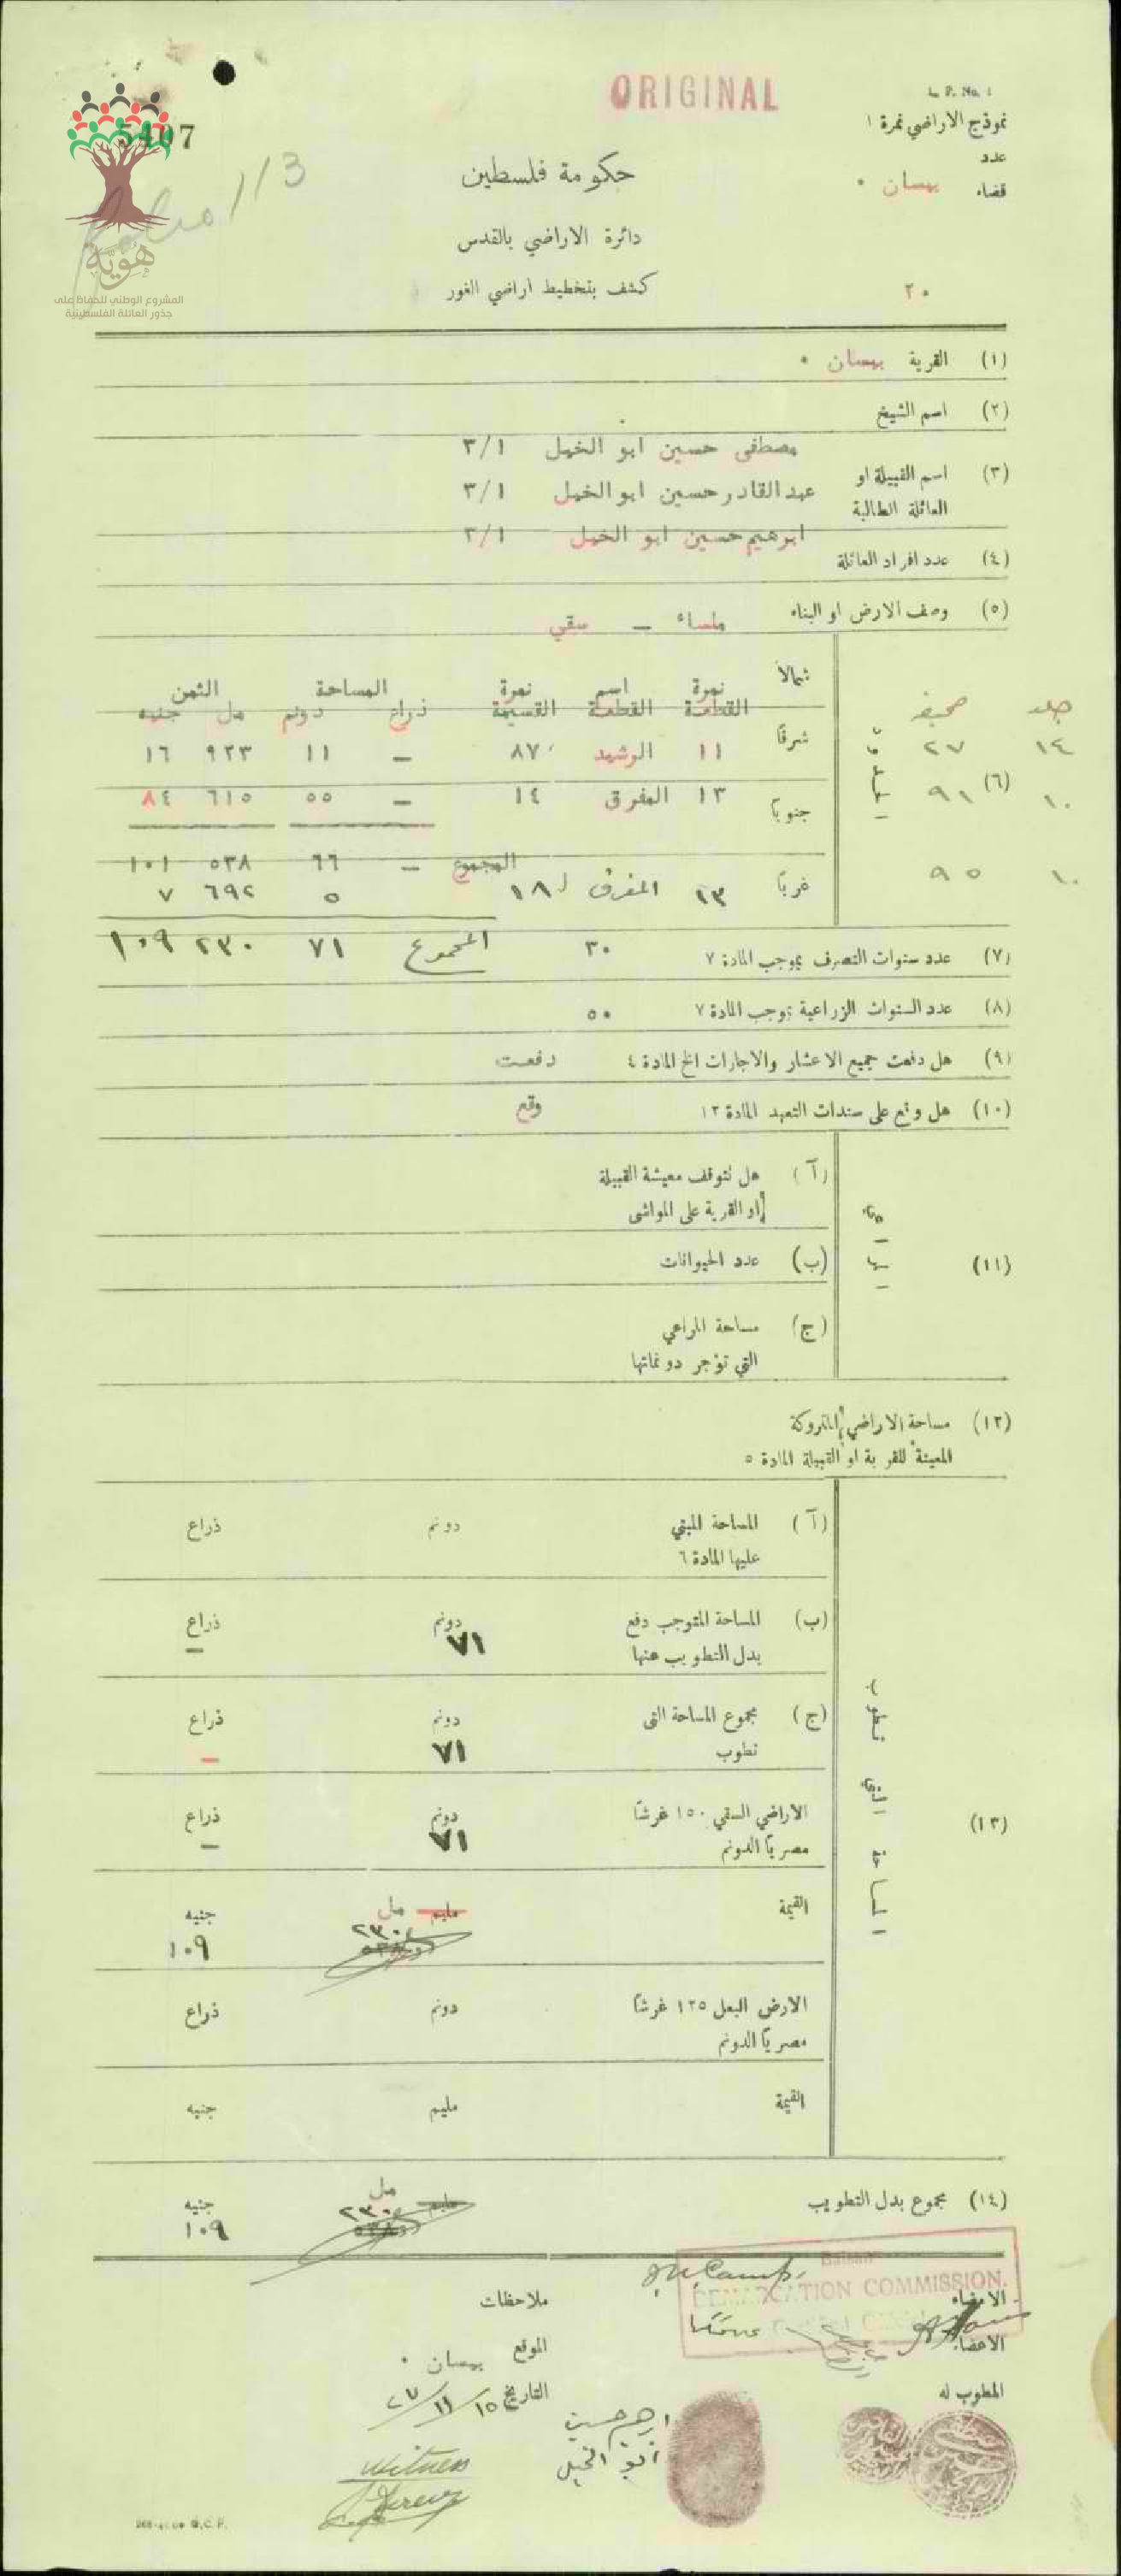 ORIGINAL
L. P. No. 1
نموذج الاراضي نمرة ١
عدد
قضاء بيسان •
5407
113
هوية
المشروع الوطني للحفاظ على
جذور العائلة الفلسطينية
حكومة فلسطين
دائرة الاراضي بالقدس
كشف بتخطيط اراضي الغور
٢٠
(١) القرية بيسان •
(٢) اسم الشيخ
مصطفى حسين ابو الخيل ٣/١
(٣) اسم القبيلة او العائلة الطالبة
عبد القادر حسين ابو الخيل ٣/١
ابرهيم حسين ابو الخيل ٣/١
(٤) عدد افراد العائلة
(٥) وصف الارض او البناء ملساء — سقي
جلد صحيفة
١٤ ٢٧
١٠ ٩١
١٠ ٩٥
(٦) الحدود
شمالاً
شرقاً
جنوباً
غرباً
نمرة القطعة اسم القطعة نمرة القسيمة المساحة الثمن
ذراع دونم مل جنيه
١١ الرشيد ٨٧ — ١١ ٩٢٣ ١٦
١٣ المفرق ١٤ — ٥٥ ٦١٥ ٨٤
المجموع — ٦٦ ٥٣٨ ١٠١
١٣ المفرق ١٨ ٥ ٦٩٢ ٧
المجموع ٧١ ٢٣٠ ١٠٩
(٧) عدد سنوات التصرف بموجب المادة ٧ ٣٠
(٨) عدد السنوات الزراعية بموجب المادة ٧ ٥٠
(٩) هل دفعت جميع الاعشار والاجارات الخ المادة ٤ دفعت
(١٠) هل وقع على سندات التعهد المادة ١٢ وقع
(١١)
(آ) هل تتوقف معيشة القبيلة
او القرية على المواشي
(ب) عدد الحيوانات
(ج) مساحة المراعي
التي تؤجر دونماتها
(١٢) مساحة الاراضي المتروكة
المعينة للقرية او القبيلة المادة ٥
(١٣)
(آ) المساحة المبني دونم ذراع
عليها المادة ٦
(ب) المساحة المتوجب دفع دونم ذراع
بدل التطويب عنها ٧١ —
(ج) مجموع المساحة التي دونم ذراع
تطوب ٧١ —
الاراضي السقي ١٥٠ غرشاً دونم ذراع
مصرياً الدونم ٧١ —
القيمة مليم مل جنيه
٢٣٠ ١٠٩
الارض البعل ١٢٥ غرشاً دونم ذراع
مصرياً الدونم
القيمة مليم جنيه
(١٤) مجموع بدل التطويب مليم مل جنيه
٢٣٠ ١٠٩
Beisan
DEMARCATION COMMISSION.
الامضاء
الاعضاء
المطوب له
ملاحظات
الموقع بيسان •
التاريخ ١٥/١١/٢٧
ابرهيم حسين
ابو الخيل
Witness